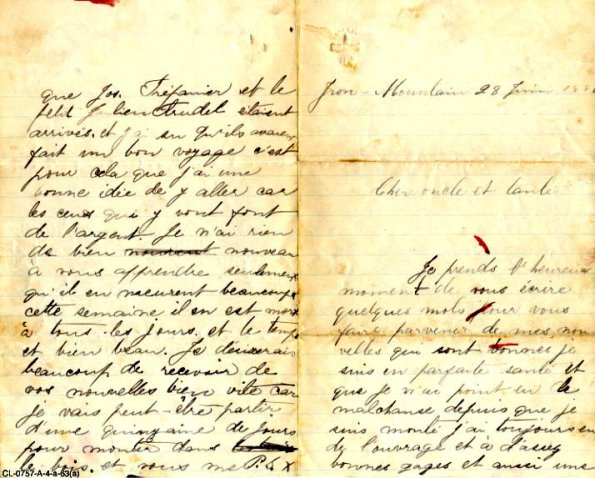 Iron-Mountain 28 Juin
Cher oncle et tante
Je prends l'heureux
moment de vous écrire
quelques mots pour vous
faire parvenir de mes nou
velles qui sont bonnes je
suis en parfaite santé et
que je n'ai point eu
malchanse depuis que je
suis monté j'ai toujours eu
de l'ouvrage et à d'assez
bonnes gages et aussi une
que Jos. Tréfanier et le
petit J. bien trudel étaient
arrivés. et j'ai su qu'ils avaient
fait un bon voyage c'est
pour cela que j'ai une
bonne idée de y aller car
les ceux qui y vont font
de l'argent. Je n'ai rien
de bien nouveau
à vous apprendre seulement
qu'il en meurent beaucoup
cette semaine il en est mort
à tous les jours. et le temps
et bien beau. Je désirerais
beaucoup de recevoir de
vos nouvelles bien vite car
je vais peut-être partir
d'une quinzaine de jours
pour monter dans
le bois. et vous me P.S X
CL-0757-A-4-a-53(a)